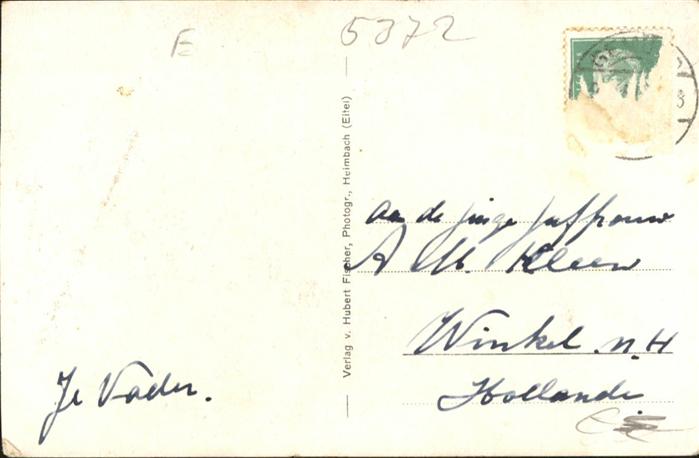 E
5372
Verlag v. Hubert Fischer, Photogr., Heimbach (Eifel)
aan de jonge juffrouw
A M. Kleen
Winkel n. H
Hollande
Je Vader.